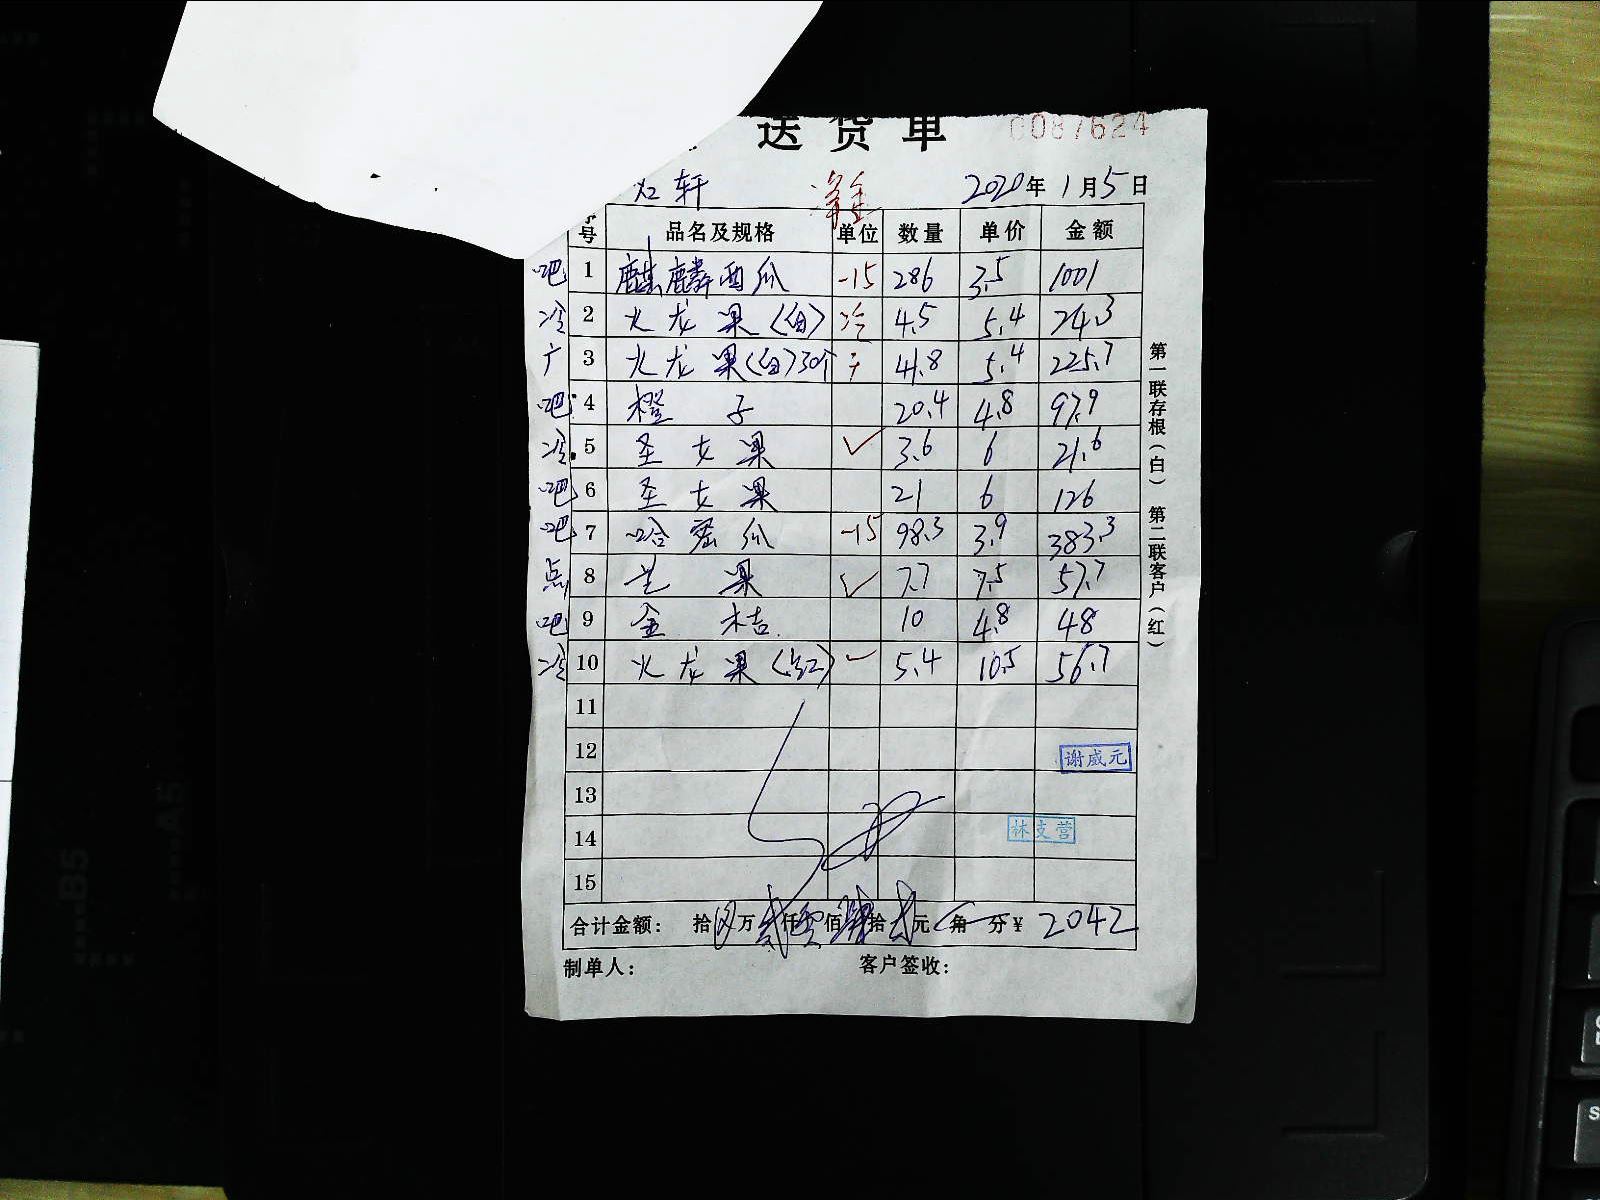 送货单 0087624
轩 2020年1月5日
号 品名及规格 单位 数量 单价 金额
吧 1 麒麟西瓜 -15 286 3.5 1001
冷 2 火龙果(白) 冷 4.5 5.4 24.3
广 3 火龙果(白)30个 41.8 5.4 225.7
吧 4 橙子 20.4 4.8 97.9
冷 5 圣女果 ✓ 3.6 6 21.6
吧 6 圣女果 21 6 126
吧 7 哈密瓜 -15 98.3 3.9 383.3
点 8 芒果 ✓ 7.7 7.5 57.7
吧 9 金桔 10 4.8 48
冷 10 火龙果(红) ✓ 5.4 10.5 56.7
11
12 谢威元
13
14 林支营
15
合计金额: 拾 万 贰仟零佰肆拾贰元 角 分¥ 2042
制单人: 客户签收:
第一联存根(白) 第二联客户(红)
B5
A5